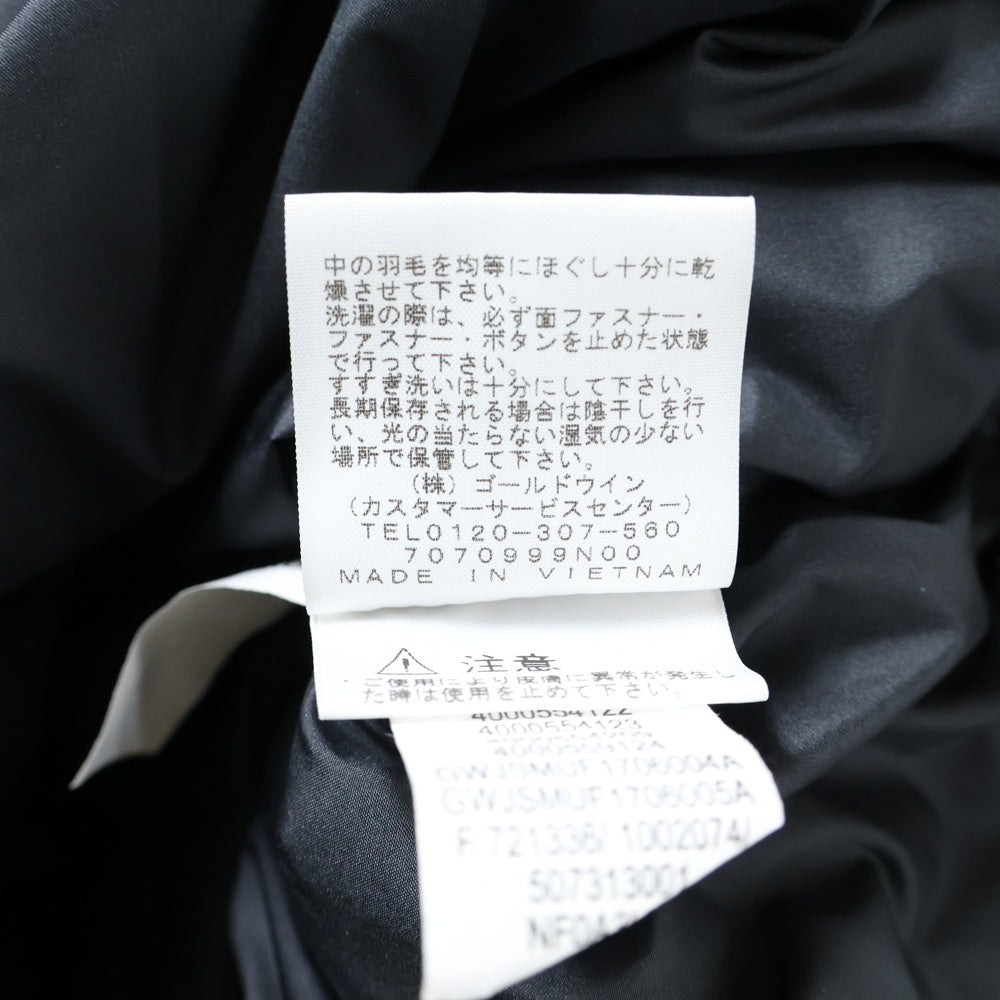 中の羽毛を均等にほぐし十分に乾
燥させて下さい。
洗濯の際は、必ず面ファスナー・
ファスナー・ボタンを止めた状態
で行って下さい。
すすぎ洗いは十分にして下さい。
長期保存される場合は陰干しを行
い、光の当たらない湿気の少ない
場所で保管して下さい。
(株)ゴールドウイン
(カスタマーサービスセンター)
TEL0120-307-560
7070999N00
MADE IN VIETNAM
注意
・ご使用により皮膚に異常が発生し
た時は使用を止めて下さい。
4000554122
4000554123
4000559124
GWJSMUF1706004A
GWJSMUF1706005A
F 721336/ 1002074/
507313001